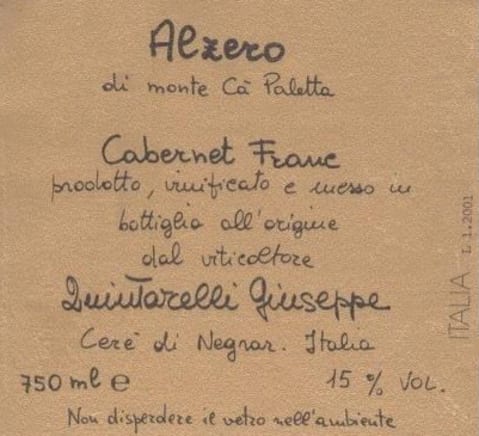 Alzero
di monte Cà Paletta
Cabernet Franc
prodotto, vinificato e messo in
bottiglia all'origine
dal viticoltore
Quintarelli Giuseppe
Cerè di Negrar. Italia
750 ml e
15 % VOL.
Non disperdere il vetro nell'ambiente
ITALIA L.1.2001